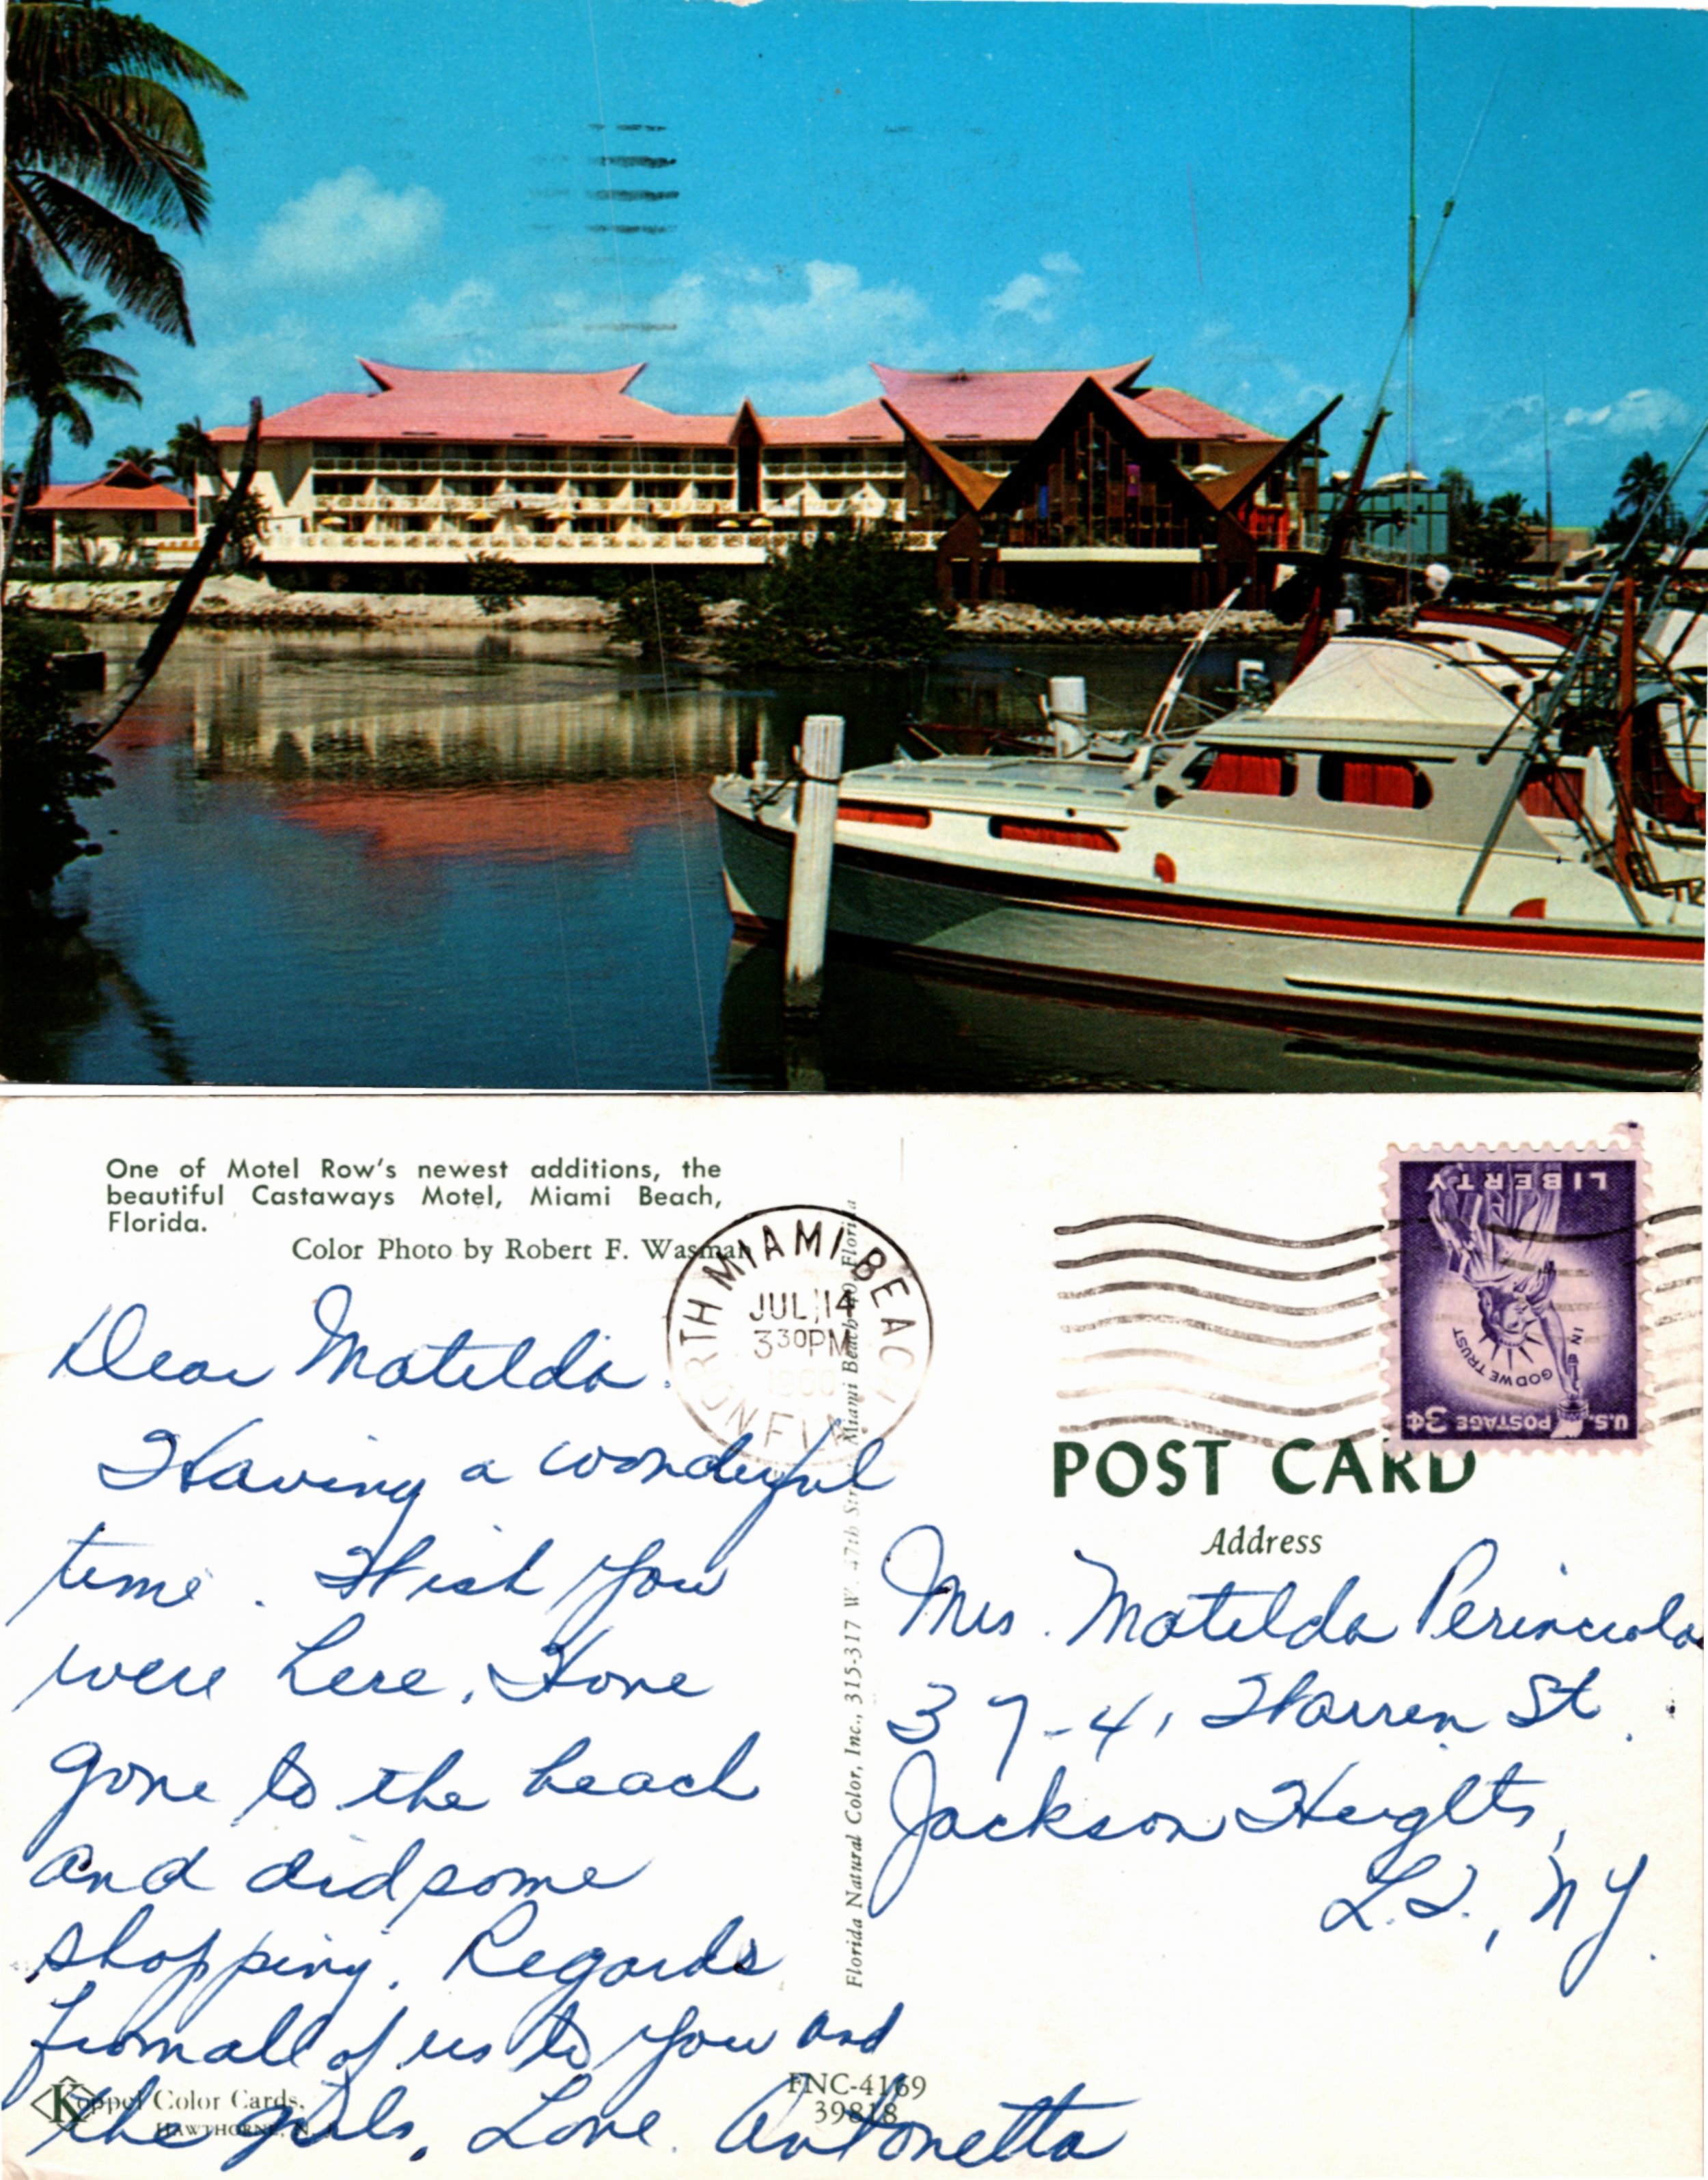 One of Motel Row's newest additions, the
beautiful Castaways Motel, Miami Beach,
Florida.
Color Photo by Robert F. Wasman
NORTH MIAMI BEACH
JUL 14
330PM
1960
FLA.
LIBERTY
IN GOD WE TRUST
U.S. POSTAGE 3¢
Dear Matilda.
Having a wonderful
time. Wish you
were here. Have
gone to the beach
and did some
shopping. Regards
from all of us to you and
the girls. Love. Antonetta
POST CARD
Address
Mrs. Matilda
37-41 Warren St.
Jackson Heights,
L.I., NY.
Florida Natural Color, Inc., 315-317 W. 47th Street, Miami Beach 40, Florida
Koppel Color Cards,
HAWTHORNE, N. J.
FNC-4169
39818